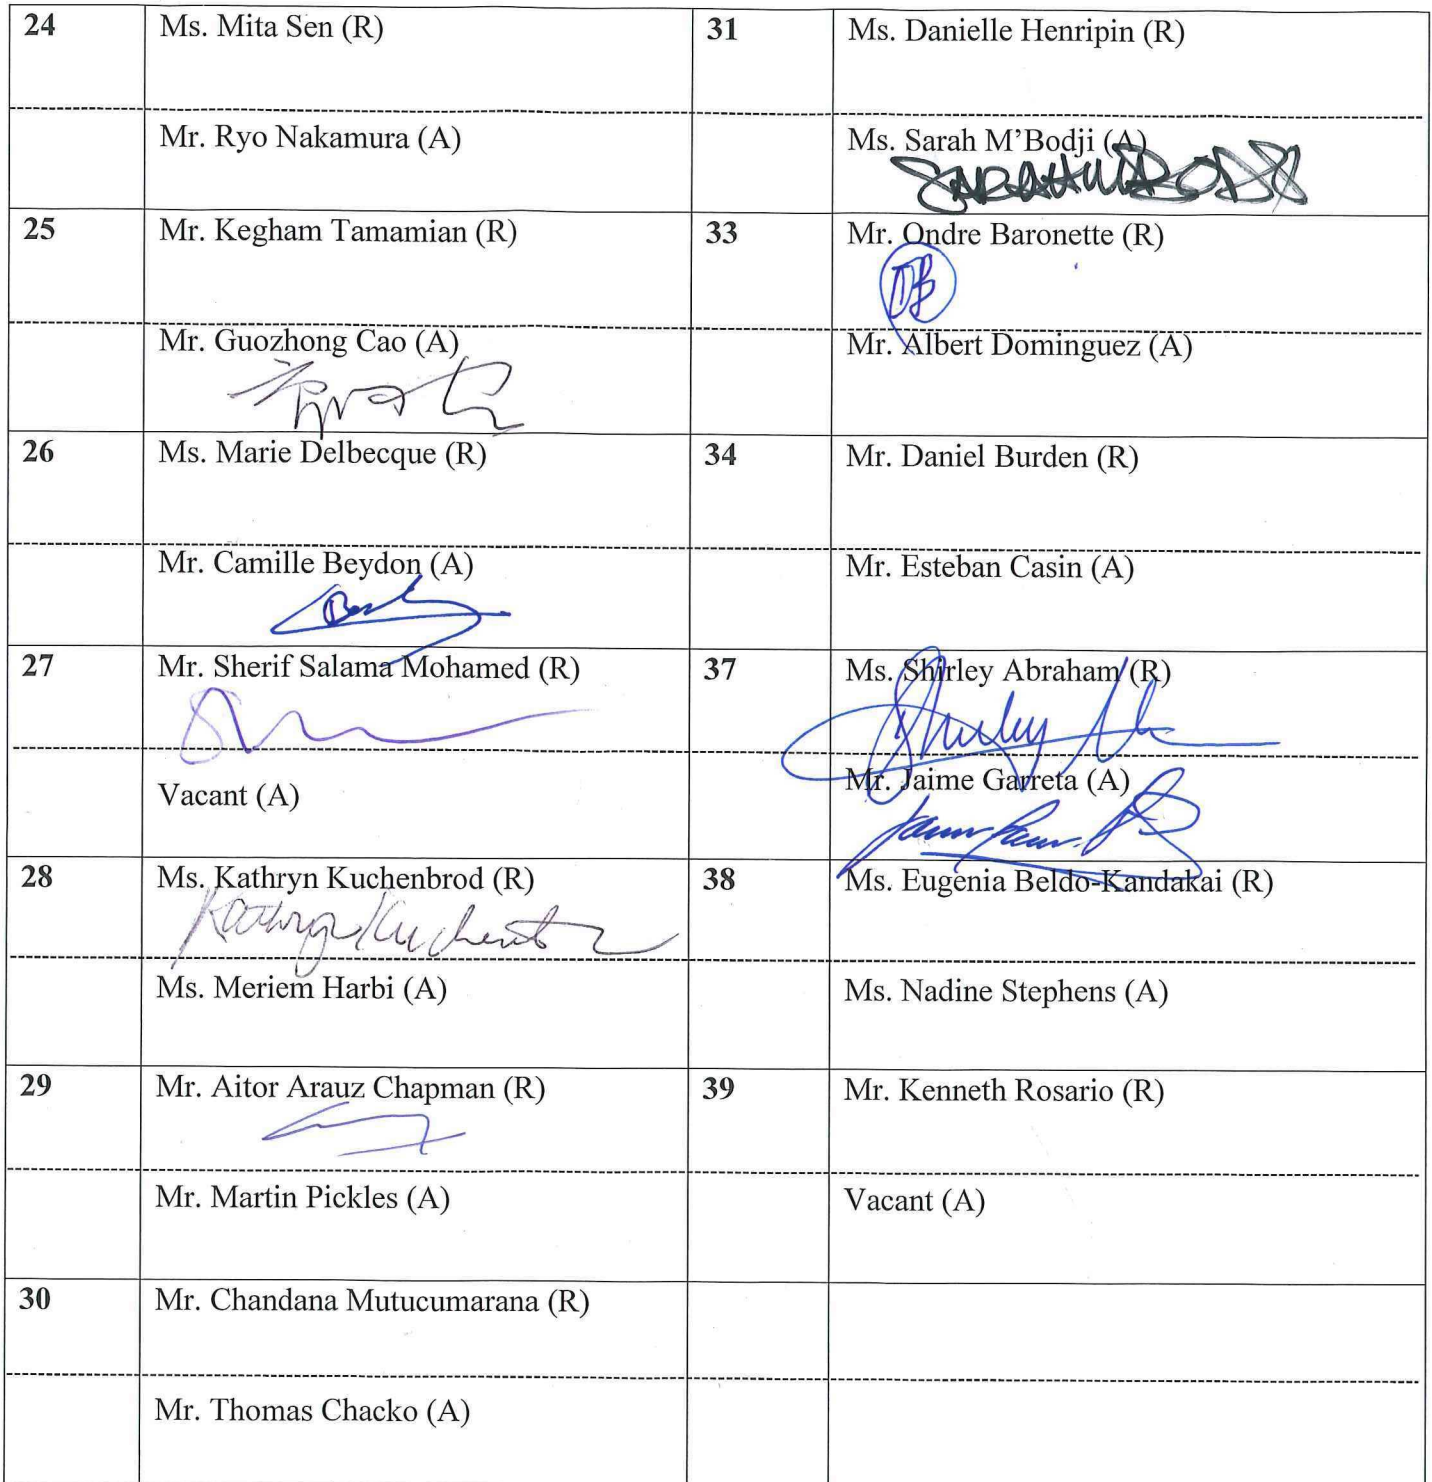 24 Ms. Mita Sen (R) 31 Ms. Danielle Henripin (R)
Mr. Ryo Nakamura (A) Ms. Sarah M'Bodji (A)
SARAH M'BODJI
25 Mr. Kegham Tamamian (R) 33 Mr. Ondre Baronette (R)
OB
Mr. Guozhong Cao (A) Mr. Albert Dominguez (A)
26 Ms. Marie Delbecque (R) 34 Mr. Daniel Burden (R)
Mr. Camille Beydon (A) Mr. Esteban Casin (A)
27 Mr. Sherif Salama Mohamed (R) 37 Ms. Shirley Abraham (R)
Shirley
Vacant (A) Mr. Jaime Garreta (A)
28 Ms. Kathryn Kuchenbrod (R) 38 Ms. Eugenia Beldo-Kandakai (R)
Kathryn Kuchenbrod
Ms. Meriem Harbi (A) Ms. Nadine Stephens (A)
29 Mr. Aitor Arauz Chapman (R) 39 Mr. Kenneth Rosario (R)
Mr. Martin Pickles (A) Vacant (A)
30 Mr. Chandana Mutucumarana (R)
Mr. Thomas Chacko (A)